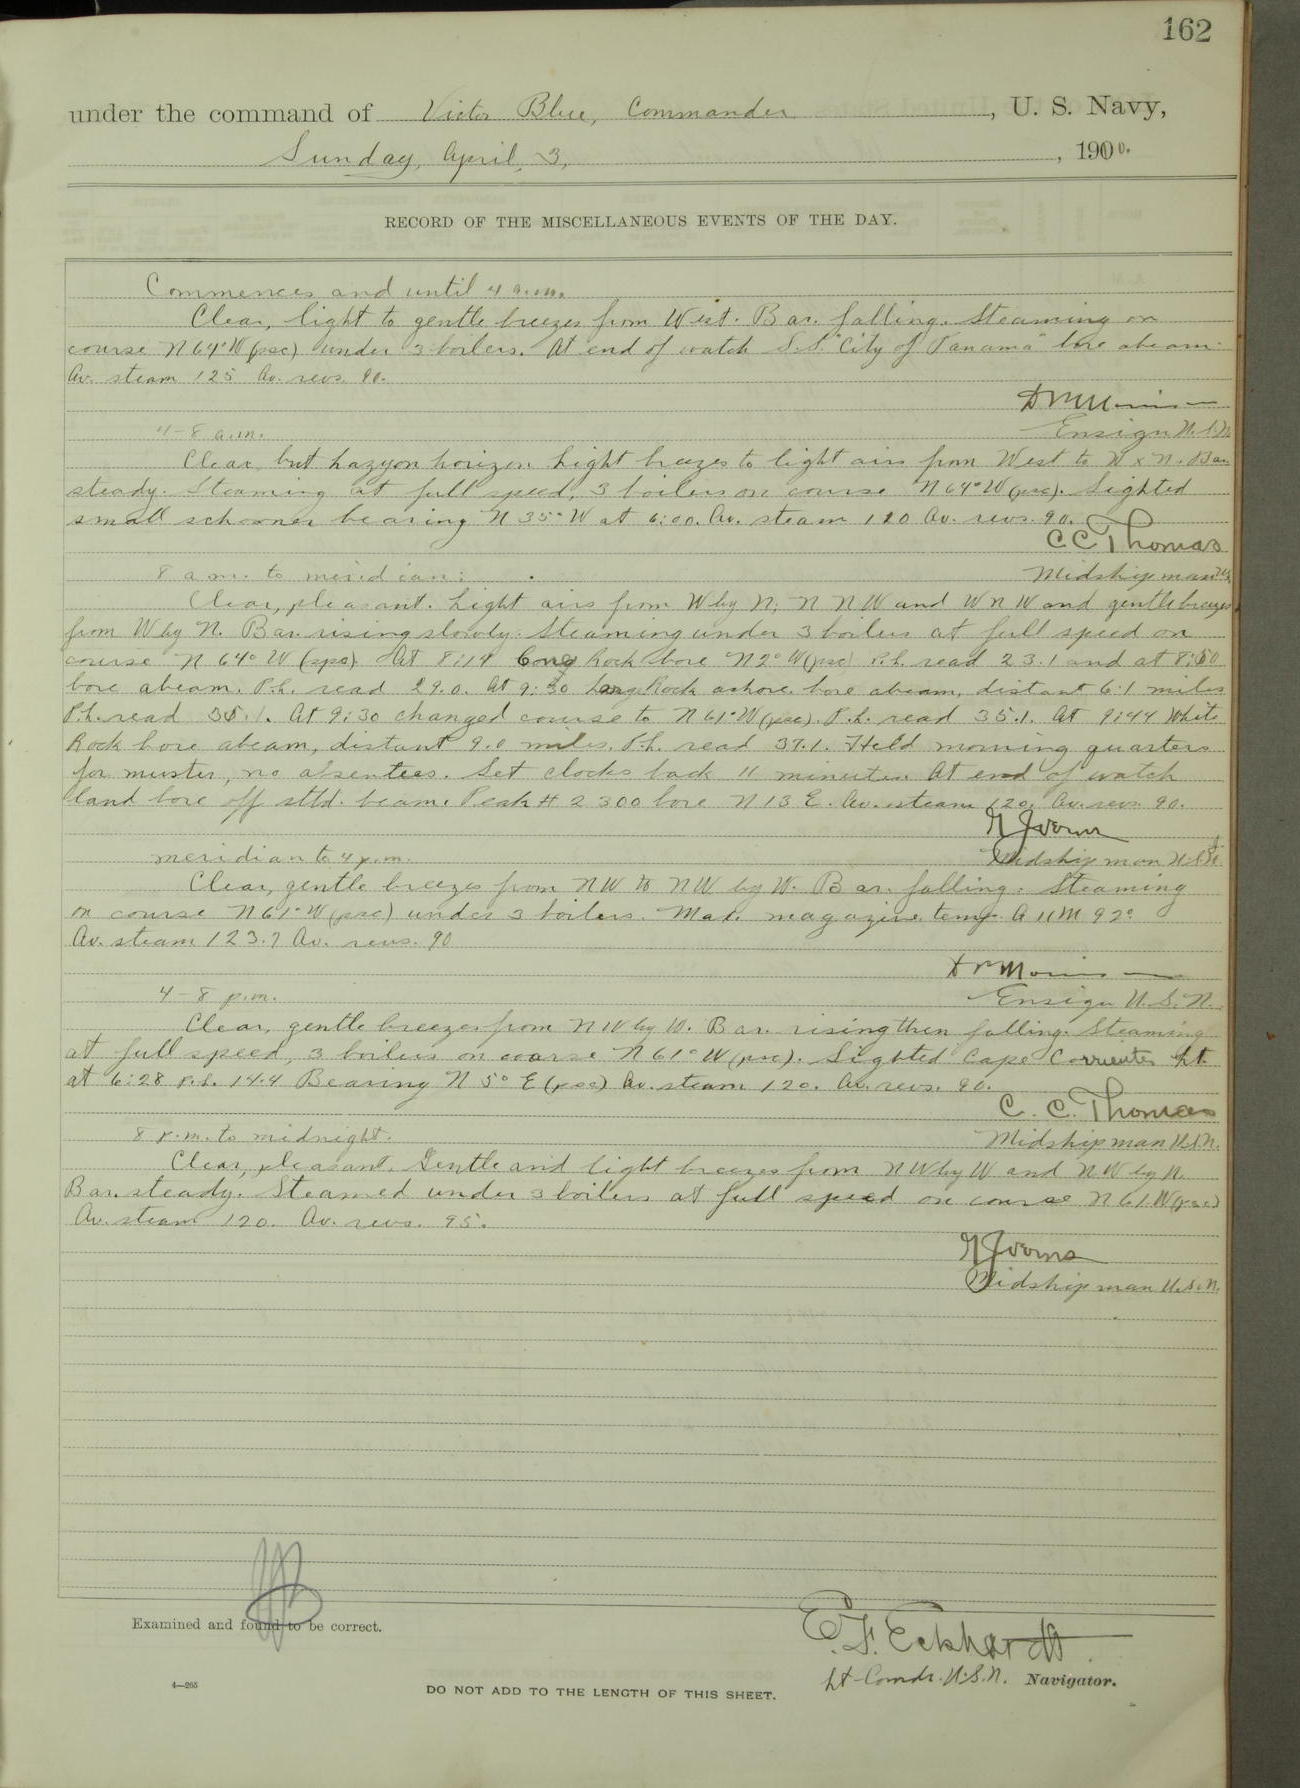 162
under the command of Victor Blue, Commander, U. S. Navy,
Sunday, April, 3, 190
RECORD OF THE MISCELLANEOUS EVENTS OF THE DAY.
Commences and until 4 a.m.
Clear, light to gentle breezes from West. Bar. falling. Steaming on
course N 64° W (psc) under 3 boilers. At end of watch S.S. "City of Panama" bore abeam.
Av. steam 125 Av. revs. 90.
Ensign U.S.N.
4-8 a.m.
Clear, but hazy on horizon. Light breezes to light airs from West to W x N. Bar.
steady. Steaming at full speed, 3 boilers on course N 64° W (psc). Sighted
small schooner bearing N 35° W at 6:00. Av. steam 120 Av. revs. 90.
C C Thomas
Midshipman
8 a.m. to meridian:
Clear, pleasant. Light airs from W by N, N N W and W N W and gentle breezes
from W by N. Bar. rising slowly. Steaming under 3 boilers at full speed on
course N 64° W (spc). At 8:14 Rock bore N 2° W (psc) P.L. read 23.1 and at 8:50
bore abeam. P.L. read 29.0. At 9:30 Rock ashore bore abeam, distant 6.1 miles
P.L. read 35.1. At 9:30 changed course to N 61° W (psc). P.L. read 35.1. At 9:44 White
Rock bore abeam, distant 9.0 miles. P.L. read 37.1. Held morning quarters
for muster, no absentees. Set clocks back 11 minutes. At end of watch
land bore off stbd. beam. Peak # 2300 bore N 13 E. Av. steam 120. Av. revs. 90.
Midshipman U.S.N.
meridian to 4 p.m.
Clear, gentle breezes from NW to NW by W. Bar. falling. Steaming
on course N 61° W (psc) under 3 boilers. Max. magazine temp. 92°
Av. steam 123.7 Av. revs. 90
Ensign U.S.N.
4-8 p.m.
Clear, gentle breezes from NW by W. Bar. rising then falling. Steaming
at full speed, 3 boilers on coarse N 61° W (psc). Sighted Cape Corrientes Lt.
at 6:28 P.L. 14.4 Bearing N 5° E (psc) Av. steam 120. Av. revs. 90.
C. C. Thomas
Midshipman U.S.N.
8 p.m. to midnight.
Clear, pleasant. Gentle and light breezes from NW by W and NW by N.
Bar. steady. Steamed under 3 boilers at full speed on course N 61 W (psc)
Av. steam 120. Av. revs. 95.
Midshipman U.S.N.
Examined and found to be correct.
E. F. Eckhardt
Lt-Comdr. U.S.N. Navigator.
4—265
DO NOT ADD TO THE LENGTH OF THIS SHEET.